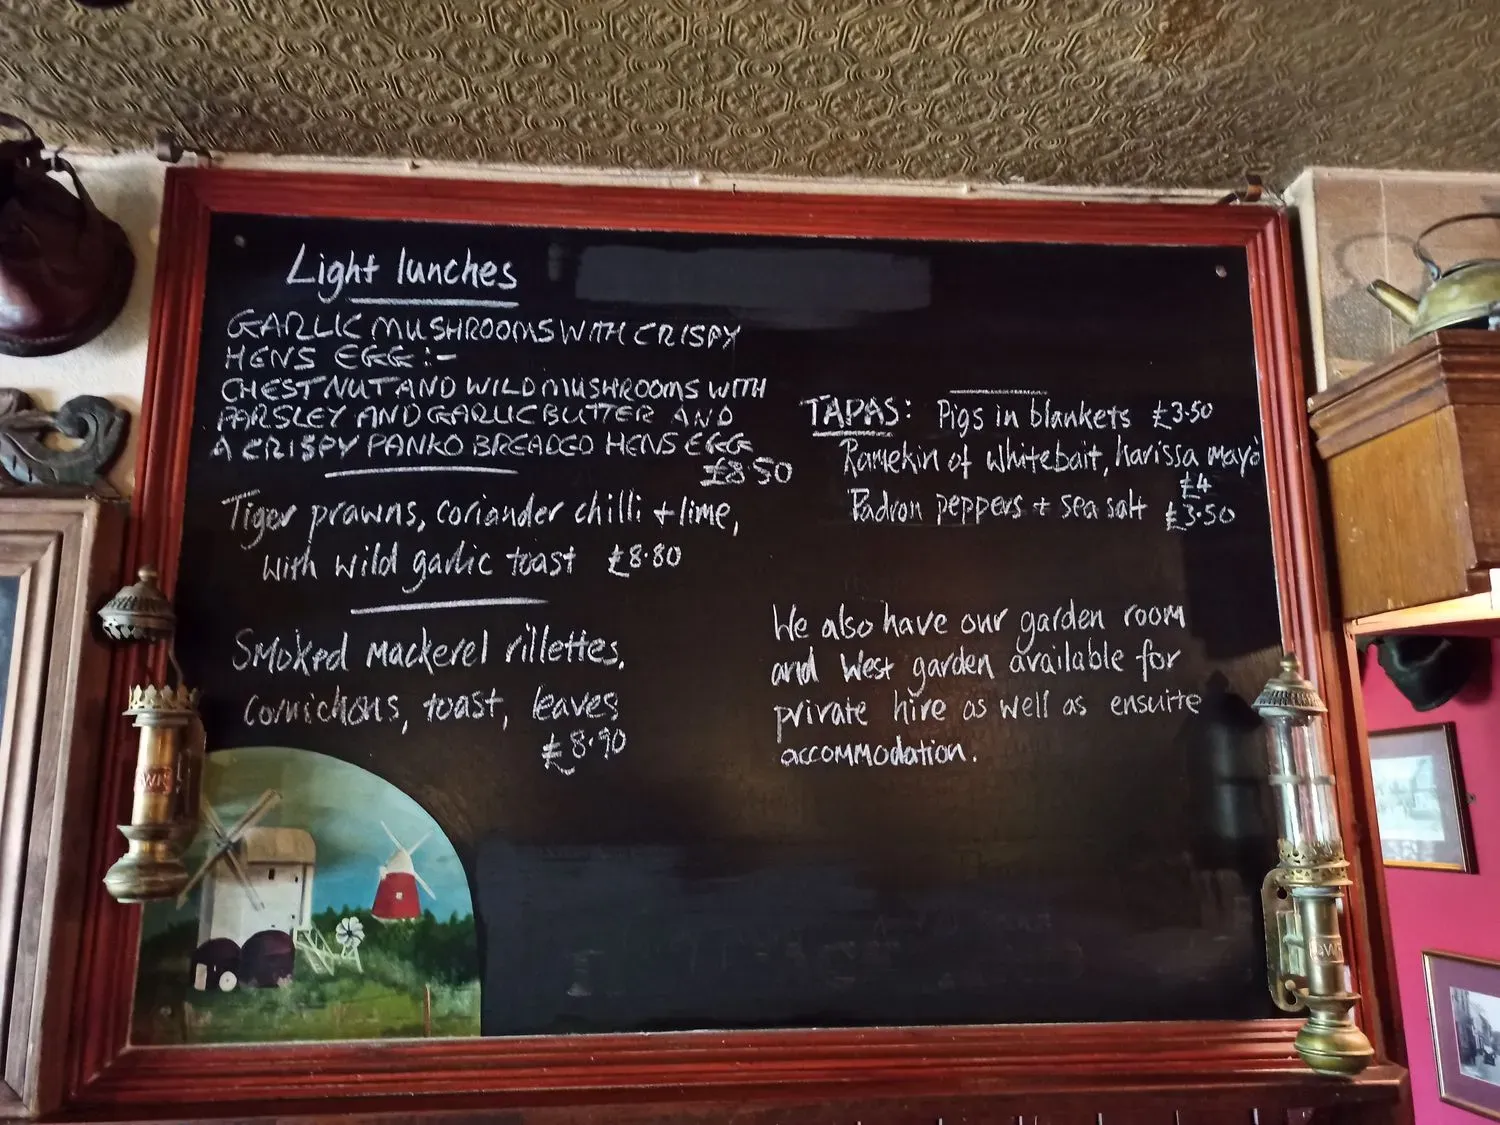 Light lunches
GARLIC MUSHROOMS WITH CRISPY
HENS EGG:-
CHESTNUT AND WILD MUSHROOMS WITH
PARSLEY AND GARLIC BUTTER AND
A CRISPY PANKO BREADED HENS EGG
£8.50
Tiger prawns, coriander chilli + lime,
with wild garlic toast £8.80
Smoked mackerel rillettes,
cornichons, toast, leaves
£8.90
TAPAS: Pigs in blankets £3.50
Ramekin of whitebait, harissa mayo
£4
Padron peppers + sea salt £3.50
We also have our garden room
and West garden available for
private hire as well as ensuite
accommodation.